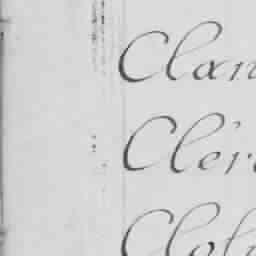 Clan
Clér
Clot